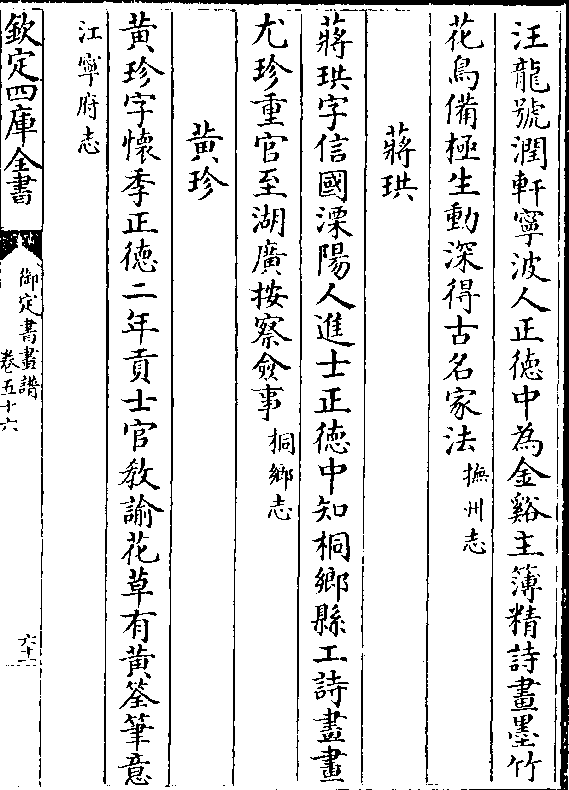 汪龍號潤軒寧波人正徳中為金谿主簿精詩畫墨竹
花鳥備極生動深得古名家法撫州志
蔣珙
蔣珙字信國溧陽人進士正徳中知桐鄉縣工詩畫畫
尤珍重官至湖廣按察僉事桐鄉志
黄珍
黄珍字懷季正徳二年貢士官教諭花草有黄筌筆意
江寧府志
欽定四庫全書
御定書畫譜
卷五十六